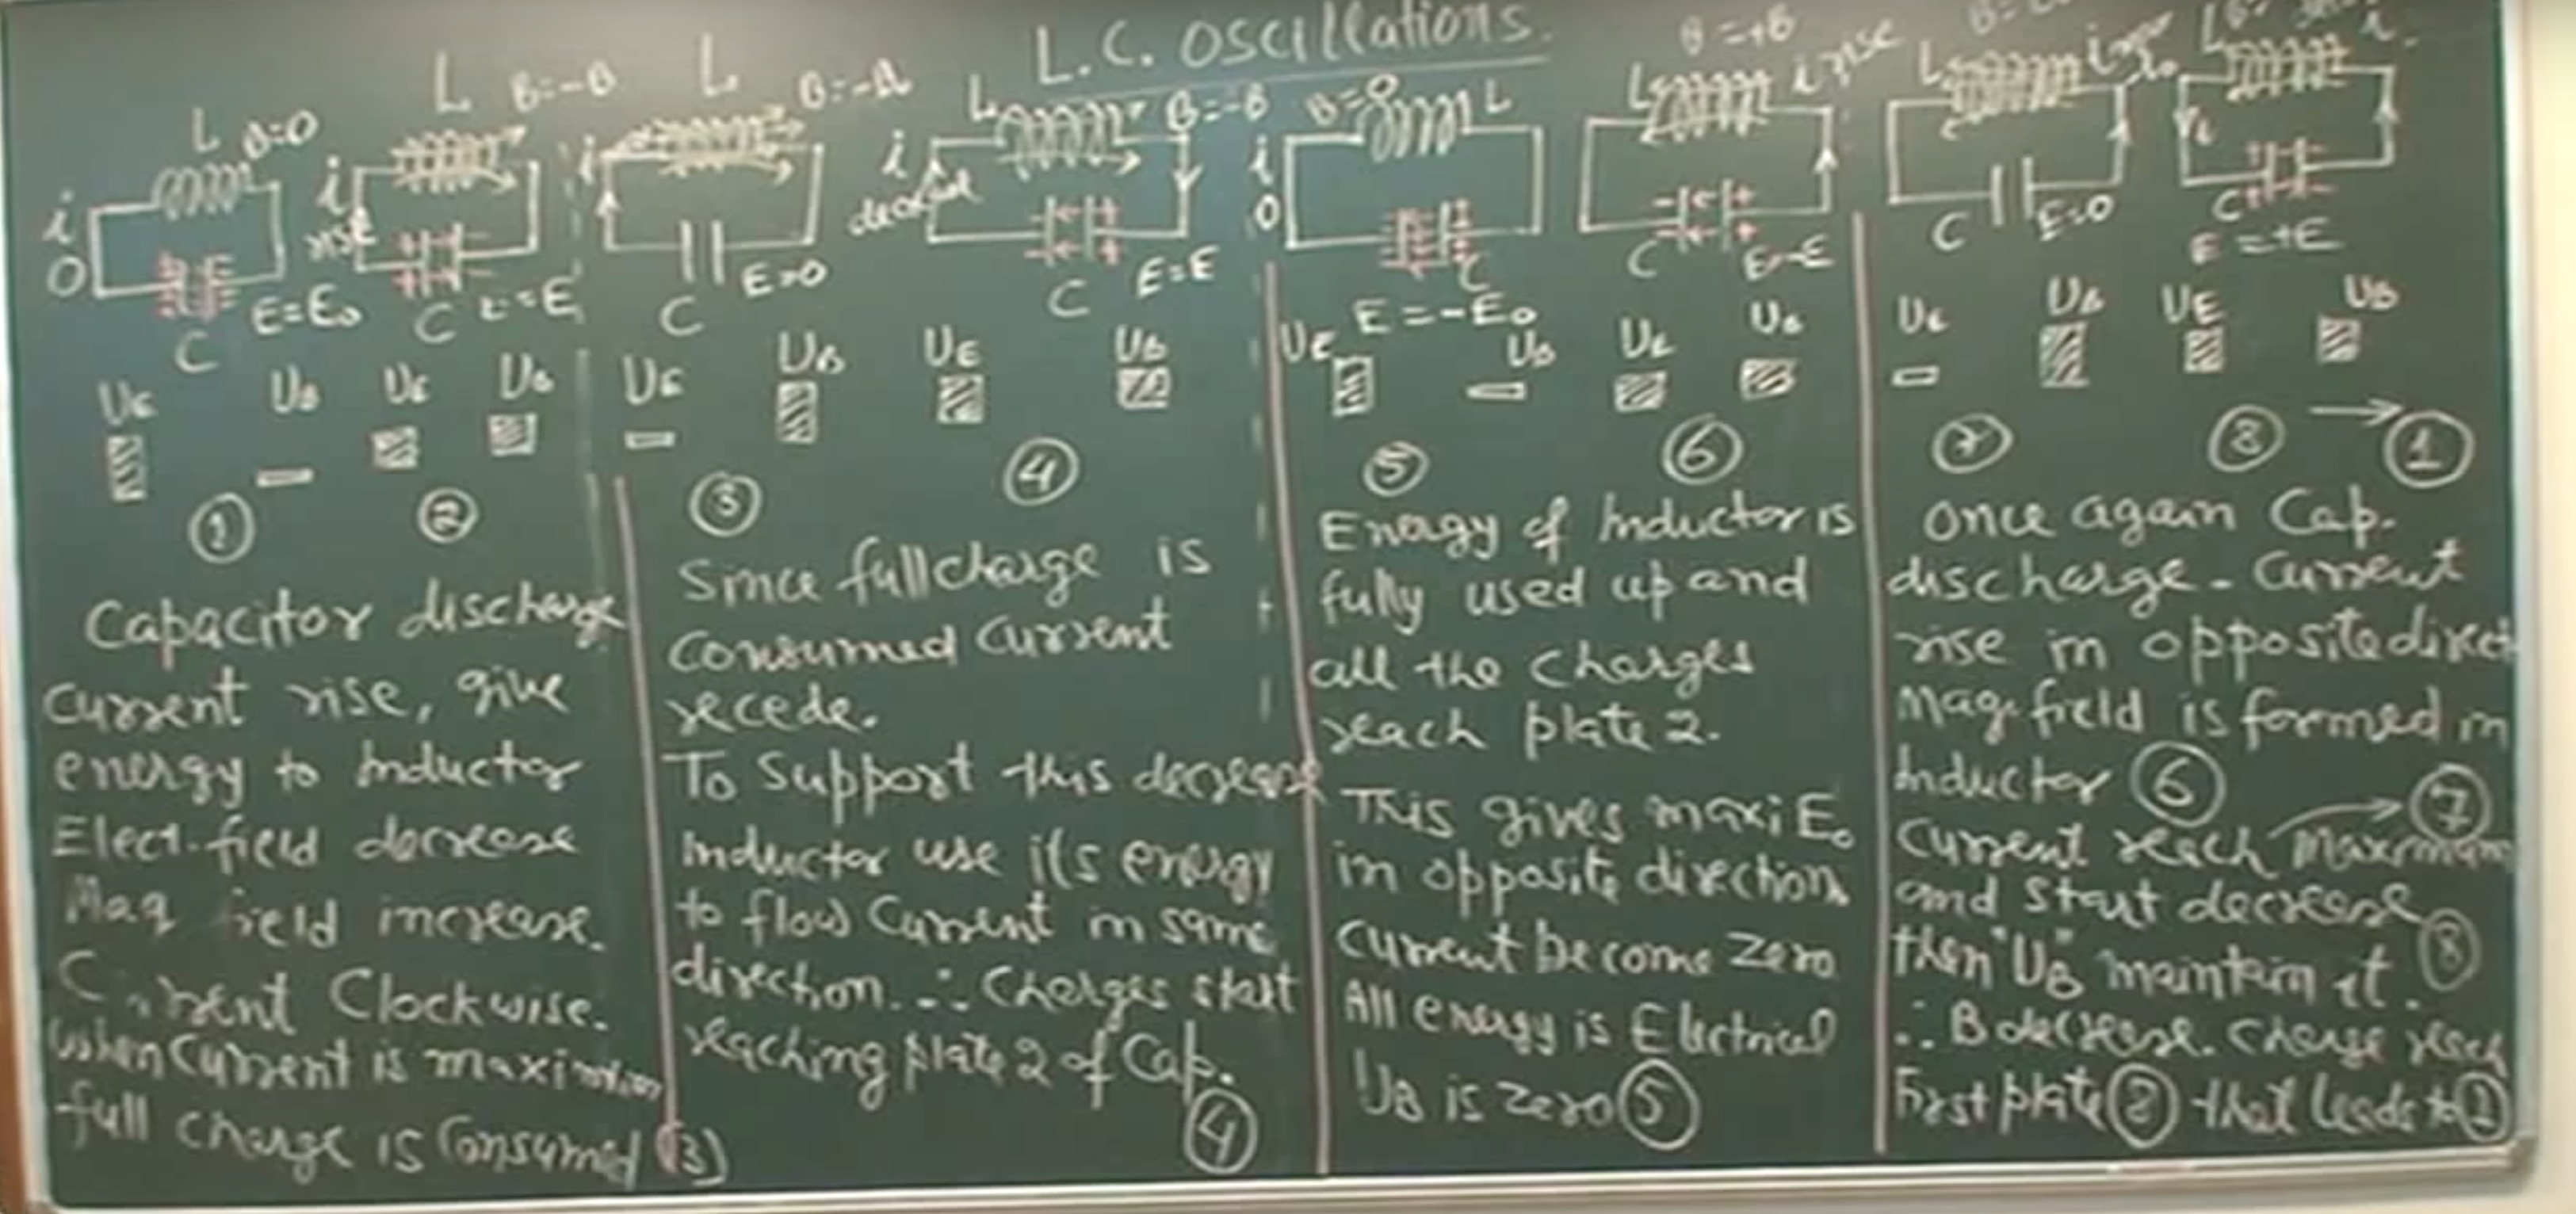 L.C. Oscillations.
L B=0
i
0
C E=E₀
L B=-B
i
rise
C E
L
i
C E=0
L B=-B
i
decrease
C E=E
B=0 L
i
0
C
E=-E₀
B=+B
L i rise
C E=-E
L
C E=0
L i
i
C
E=+E
UE UB
UE UB
UE UB
UE UB
UE UB
UE UB
UE UB
UE UB
① ② ③ ④ ⑤ ⑥ ⑦ ⑧ → ①
Capacitor discharge
Current rise, give
energy to Inductor
Elect. field decrease
Mag field increase.
Current Clockwise.
When Current is maximum
full charge is Consumed (3)
Since full charge is
Consumed Current
recede.
To Support this decrease
Inductor use its energy
to flow Current in same
direction. ∴ Charges start
reaching plate 2 of Cap.
④
Energy of Inductor is
fully used up and
all the charges
reach plate 2.
This gives maxi E₀
in opposite direction
Current become zero
All energy is Electrical
UB is zero ⑤
Once again Cap.
discharge. Current
rise in opposite direct
Mag. field is formed in
Inductor ⑥
Current reach Maximum → ⑦
and Start decrease
then "UB" maintain it. ⑧
∴ B decrease. Charge reach
First plate ⑧ that leads to ①